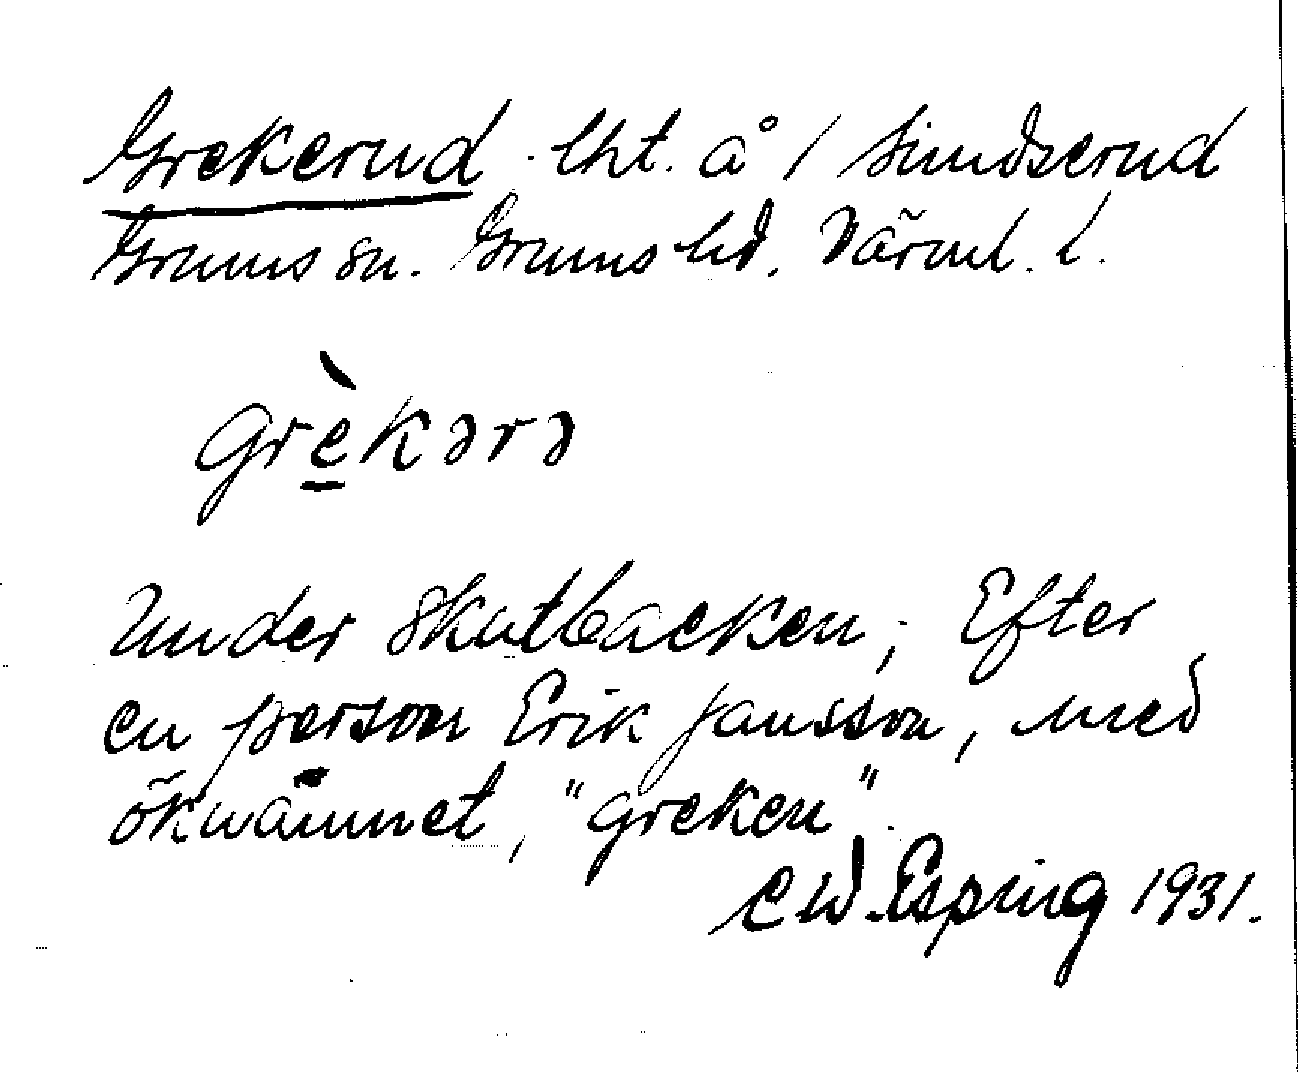 Grekerud. lht. å 1 Sundserud
Grums sn. Grums hd. Värml. l.
grèkərə
Under Skutbacken; Efter
en person Erik Jansson, med
öknamnet, "greken".
C W. Esping 1931.